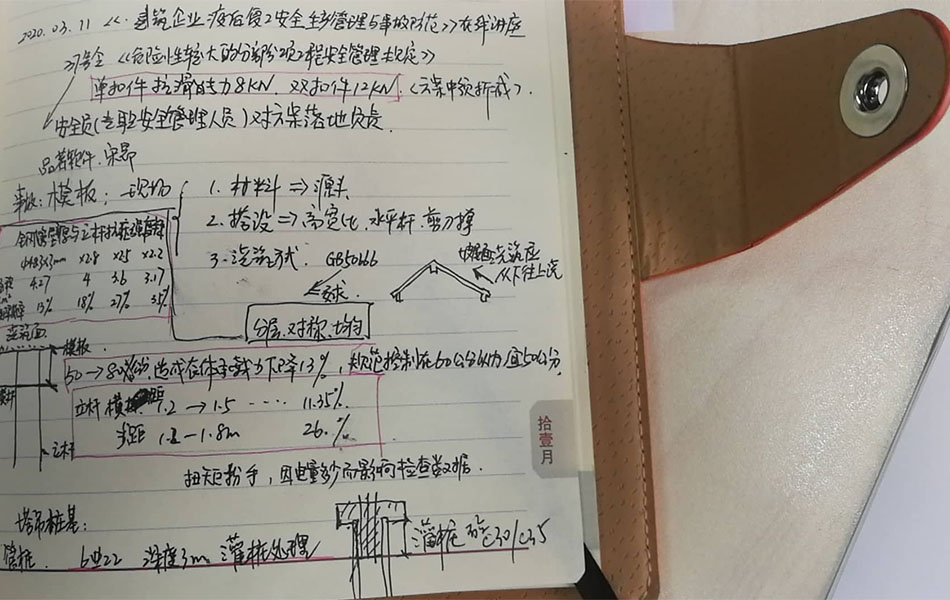 2020.03.11 《建筑企业疫后复工安全生产管理与事故防范》在线讲座
37号令《危险性较大的分部分项工程安全管理规定》
单扣件抗滑力8KN 双扣件12KN.(方案中须折减).
安全员(专职安全管理人员)对方案落地负责.
品茗软件.
事故:模板:
1. 材料 ⇒ 源头
2. 搭设 ⇒ 高宽比, 水平杆. 剪刀撑
3. 浇筑方式. GB50666
要求
从下往上浇
分层.对称.均匀
×2.8 ×2.5 ×2.2
4.27 4 3.6 3.17
13% 18% 27% 35%
浇筑面
模板.
50→80 造成整体承载力下降13%, 规范控制在60公分以内宜50公分
立杆横距 1.2 → 1.5 ···· 11.35%
步距 1.2-1.8m 26.%
立杆
扭矩扮手, 因电量多少而影响检查数据.
塔吊桩基:
管桩. 6Φ22 深度3m 灌桩处理
灌桩 砼C30/C35
拾壹月